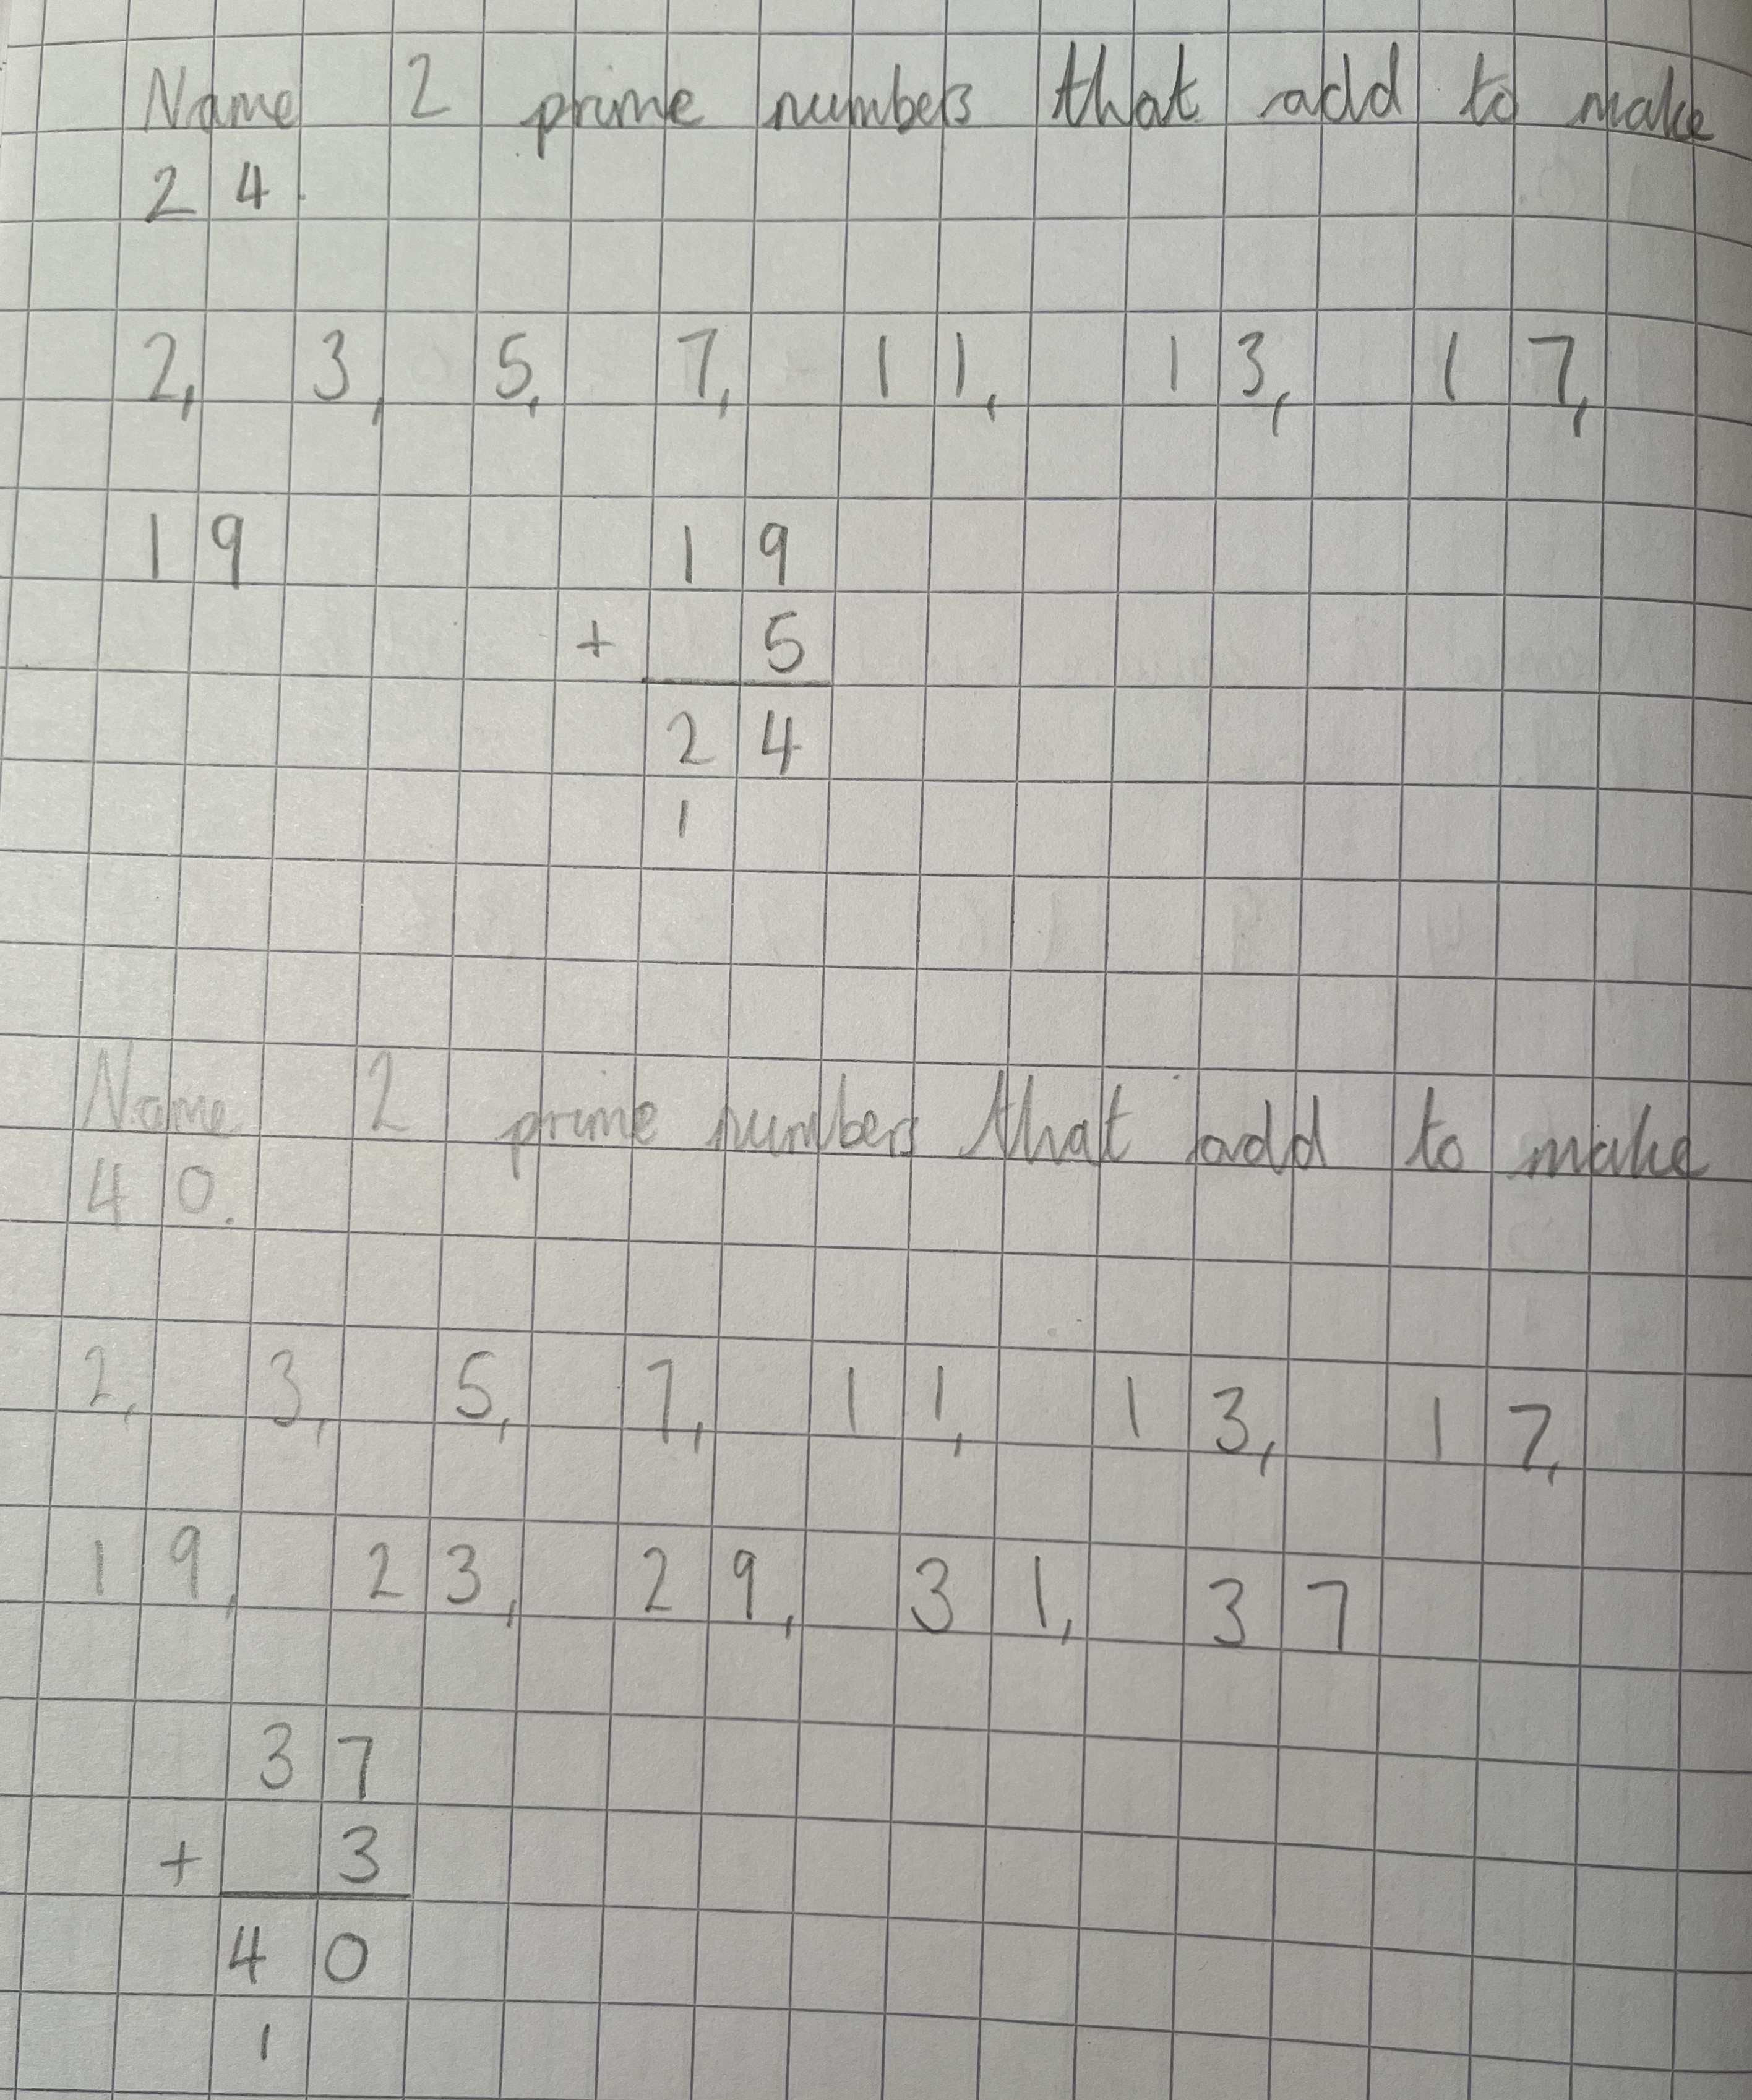 Name 2 prime numbers that add to make
24.
2, 3, 5, 7, 11, 13, 17,
19 19
+ 5
24
1
Name 2 prime numbers that add to make
40.
2, 3, 5, 7, 11, 13, 17,
19, 23, 29, 31, 37
37
+ 3
40
1